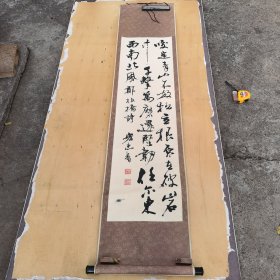 咬定青山不放松立根原在破岩
中千擊萬磨還堅勁任尔東
西南北風鄭板橋詩